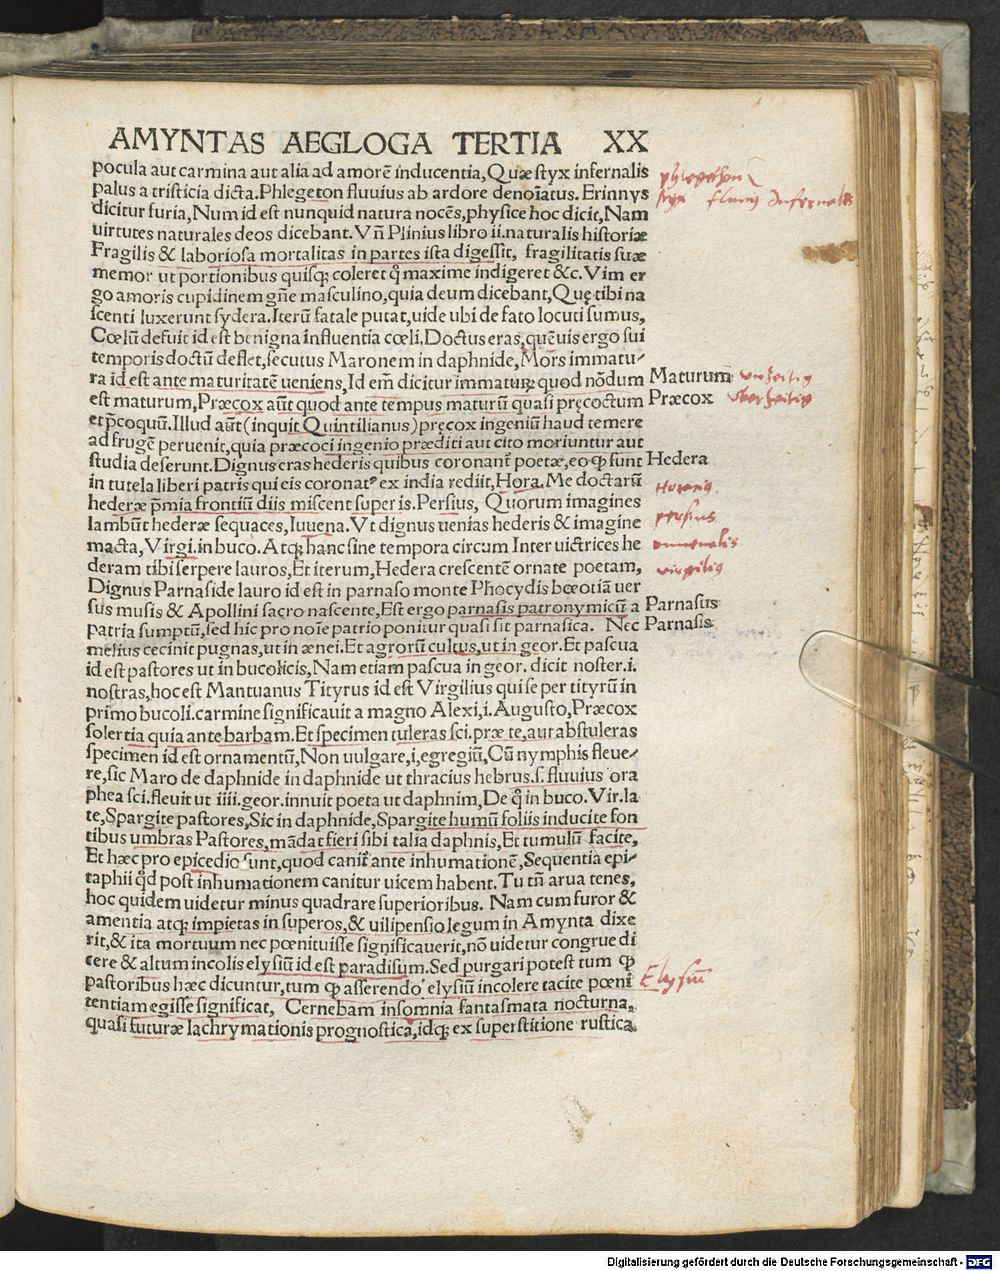 AMYNTAS AEGLOGA TERTIA XX
pocula aut carmina aut alia ad amorē inducentia, Quæ styx infernalis
palus a tristicia dicta. Phlegeton fluvius ab ardore denoīatus. Erinnys
dicitur furia, Num id est nunquid natura nocēs, physice hoc dicit, Nam
virtutes naturales deos dicebant. Vñ Plinius libro ii. naturalis historiæ
Fragilis & laboriosa mortalitas in partes ista digessit, fragilitatis suæ
memor ut portionibus quisqꝫ coleret q̊ maxime indigeret &c. Vim er
go amoris cupidinem gñe masculino, quia deum dicebant, Quę tibi na
scenti luxerunt sydera. Iterū fatale putat, uide ubi de fato locuti sumus,
Cœlū defuit id est benigna influentia cœli. Doctus eras, quēuis ergo sui
temporis doctū deflet, secutus Maronem in daphnide, Mors immatu⸗
ra id est ante maturitatē ueniens, Id em̄ dicitur immaturꝫ quod nōdum Maturum unzeitig
est maturum, Præcox aūt quod ante tempus maturū quasi pręcoctum Præcox
et p̄coquū. Illud aūt (inquit Quintilianus) pręcox ingeniū haud temere
ad frugē peruenit, quia præcoci ingenio præditi aut cito moriuntur aut
studia deserunt. Dignus eras hederis quibus coronanť poetæ, eo ꝙ sunt Hedera
in tutela liberi patris qui eis coronatꝰ ex india rediit, Hora. Me doctarū
hederæ p̄mia frontiū diis miscent superis. Persius, Quorum imagines
lambūt hederæ sequaces, Iuuena. Vt dignus uenias hederis & imagine
macta, Virgi. in buco. Atqꝫ hanc sine tempora circum Inter uictrices he
deram tibi serpere lauros, Et iterum, Hedera crescentē ornate poetam,
Dignus Parnaside lauro id est in parnaso monte Phocydis bœotiā uer
sus musis & Apollini sacro nascente, Est ergo parnasis patronymicū a Parnasus
patria sumptū, sed hic pro noīe patrio ponitur quasi sit parnasica. Nec Parnasis
melius cecinit pugnas, ut in ænei. Et agrorū cultus, ut in geor. Et pascua
id est pastores ut in bucolicis, Nam etiam pascua in geor. dicit noster .i.
nostras, hoc est Mantuanus Tityrus id est Virgilius qui se per tityrū in
primo bucoli. carmine significauit a magno Alexi, i. Augusto, Præcox
solertia quia ante barbam. Et specimen tuleras sci. præ te, aut abstuleras
specimen id est ornamentū, Non uulgare, i, egregiū, Cū nymphis fleue⸗
re, sic Maro de daphnide in daphnide ut thracius hebrus. s. fluuius ora
phea sci. fleuit ut iiii. geor. innuit poeta ut daphnim, De q̊ in buco. Vir. la
te, Spargite pastores, Sic in daphnide, Spargite humū foliis inducite fon
tibus umbras Pastores, mādat fieri sibi talia daphnis, Et tumulū facite,
Et hæc pro epicedio sunt, quod caniť ante inhumationē, Sequentia epi⸗
taphii q̊d post inhumationem canitur uicem habent. Tu tñ arua tenes,
hoc quidem uidetur minus quadrare superioribus. Nam cum furor &
amentia atqꝫ impietas in superos, & uilipensio legum in Amynta dixe
rit, & ita mortuum nec pœnituisse significauerit, nō uidetur congrue di
cere & altum incolis elysiū id est paradisum. Sed purgari potest tum ꝙ
pastoribus hæc dicuntur, tum ꝙ asserendo elysiū incolere tacite pœni Elysiū
tentiam egisse significat, Cernebam insomnia fantasmata nocturna,
quasi futuræ lachrymationis prognostica, idqꝫ ex superstitione rustica.
phlegethon
styx fluvius Infernalis
Horatius
persius
Iuuenalis
virgilius
Digitalisierung gefördert durch die Deutsche Forschungsgemeinschaft - DFG